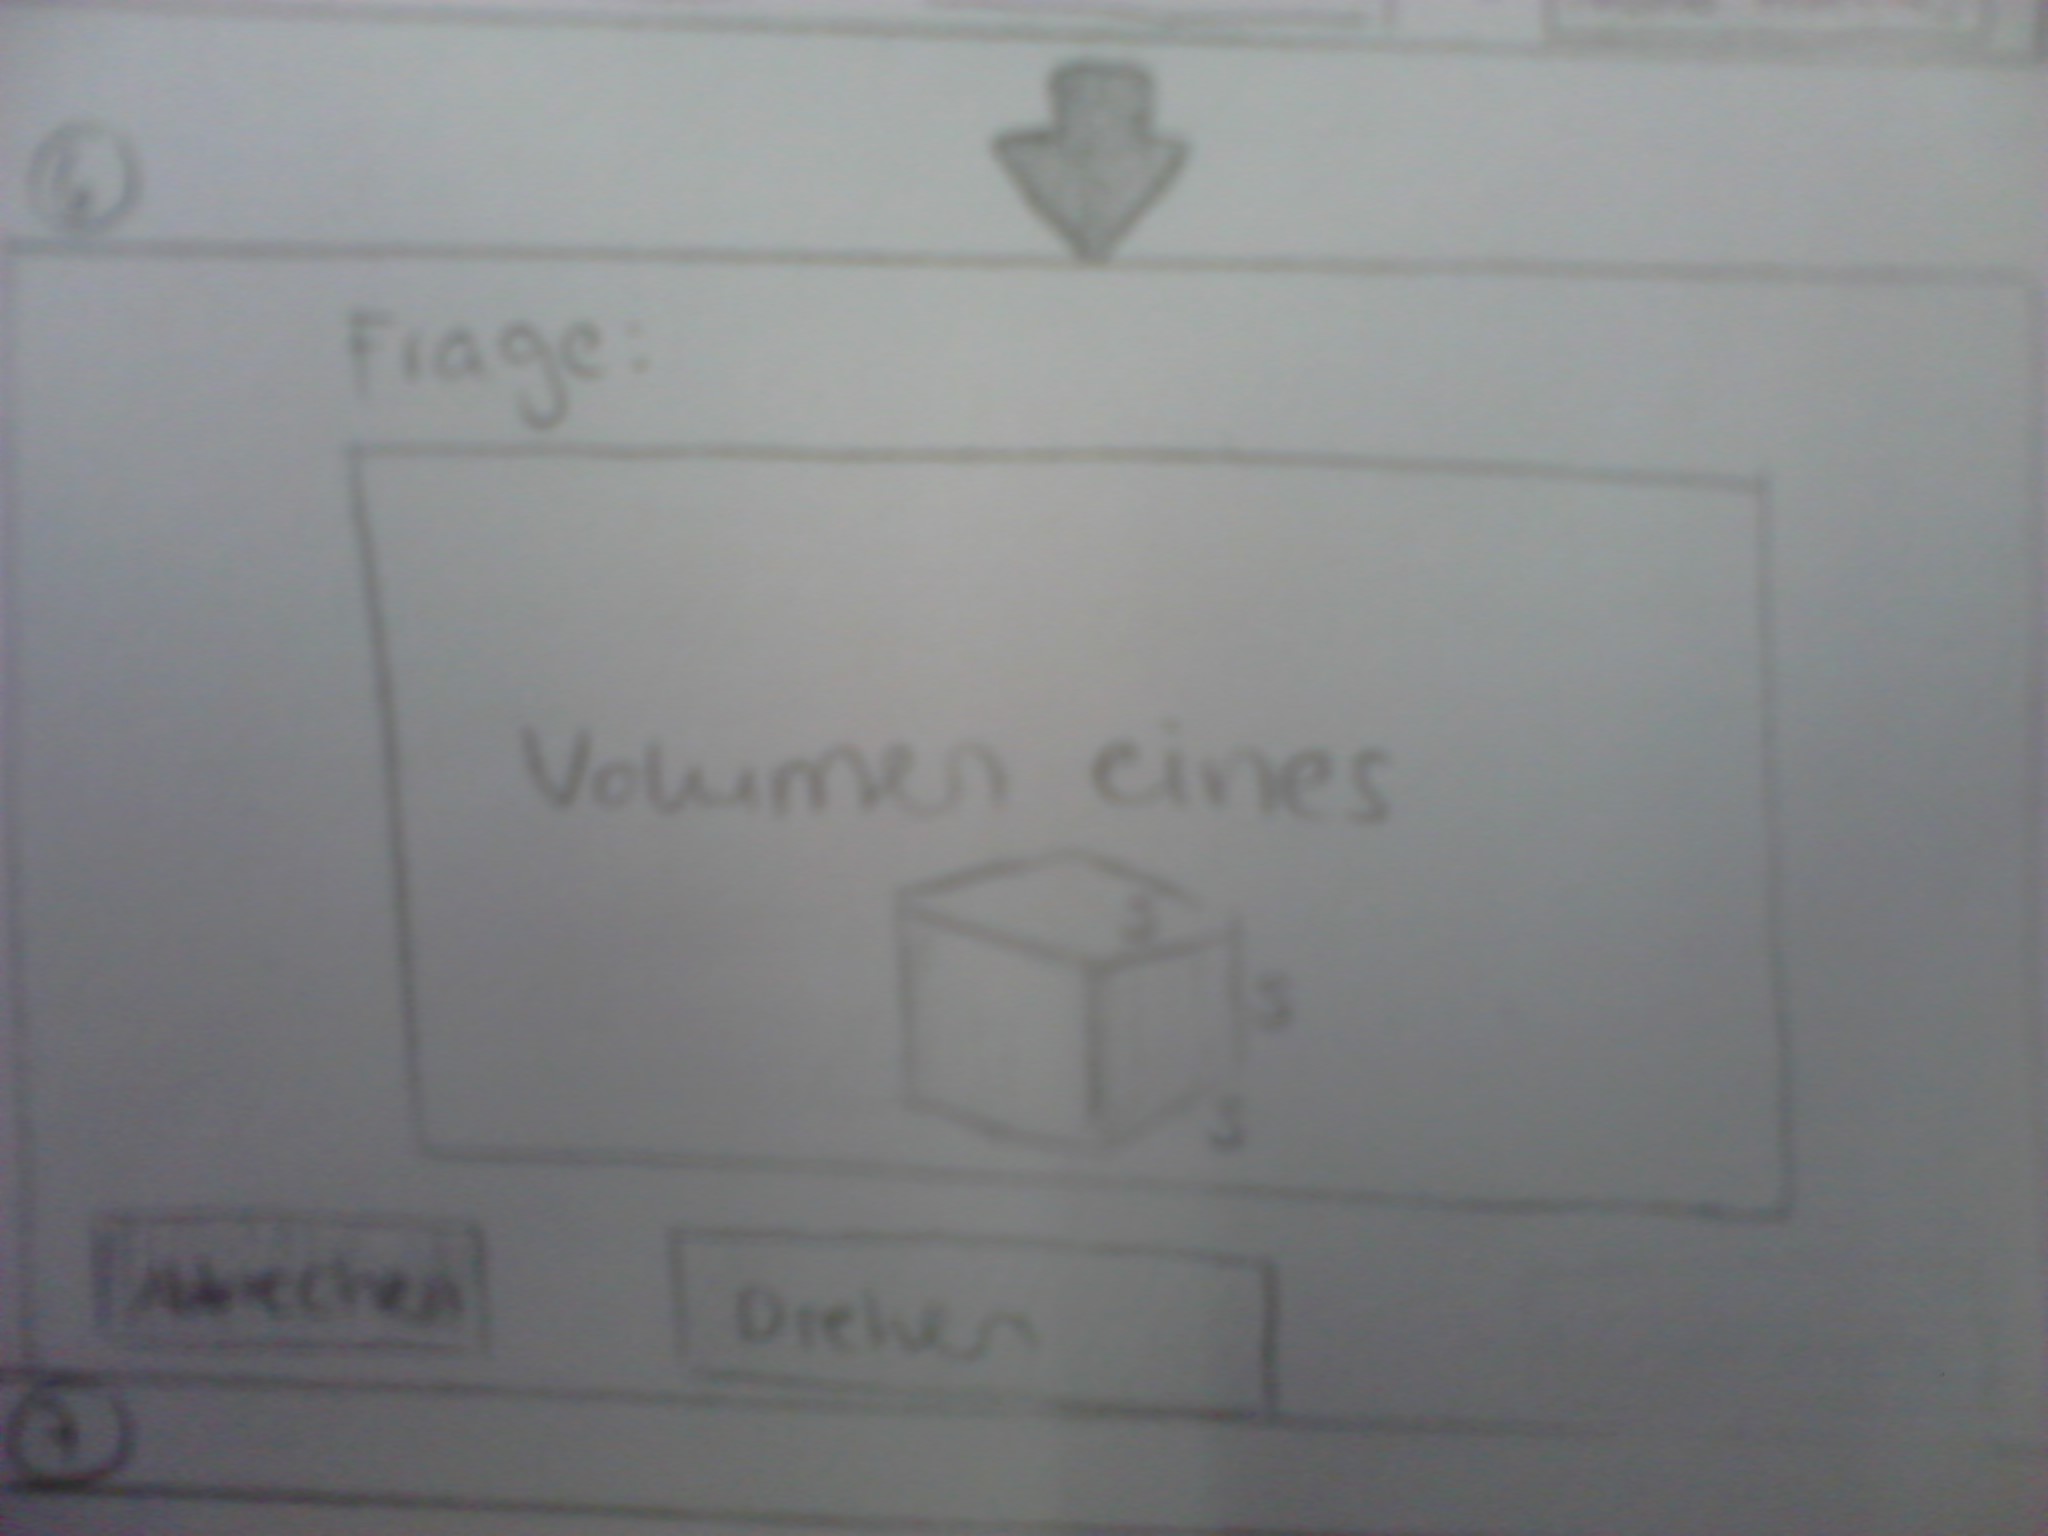 Frage:
Volumen eines
s
s
s
Abbrechen
Drehen
7